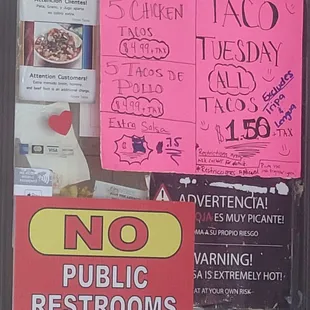 Attention Clientes!
Attention Customers!
5 CHICKEN
TACOS
$4.99 + TAX
5 TACOS DE
POLLO
$4.99 + TAX
Extra Salsa
.75
TACO
TUESDAY
(ALL)
TACOS
$1.50 + TAX
Excludes
Tripa
&
Lengua
VISA
ADVERTENCIA!
OJA ES MUY PICANTE!
MA A SU PROPIO RIESGO
WARNING!
SA IS EXTREMELY HOT!
AT AT YOUR OWN RISK
NO
PUBLIC
RESTROOMS